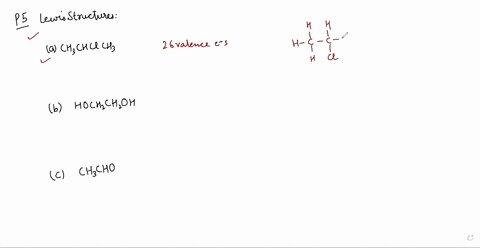 P5 Lewis Structures:
(a) CH₃CHClCH₃ 26 valence e-s
H H
H-C-C-
H Cl
(b) HOCH₂CH₂OH
(c) CH₃CHO